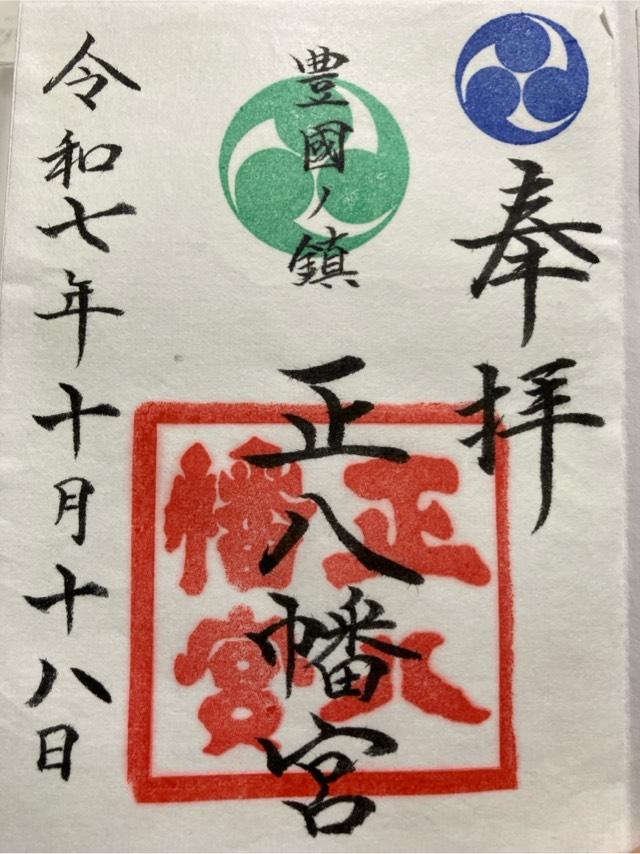 奉拝
豊國ノ鎮
正八幡宮
正八
幡宮
令和七年十月十八日